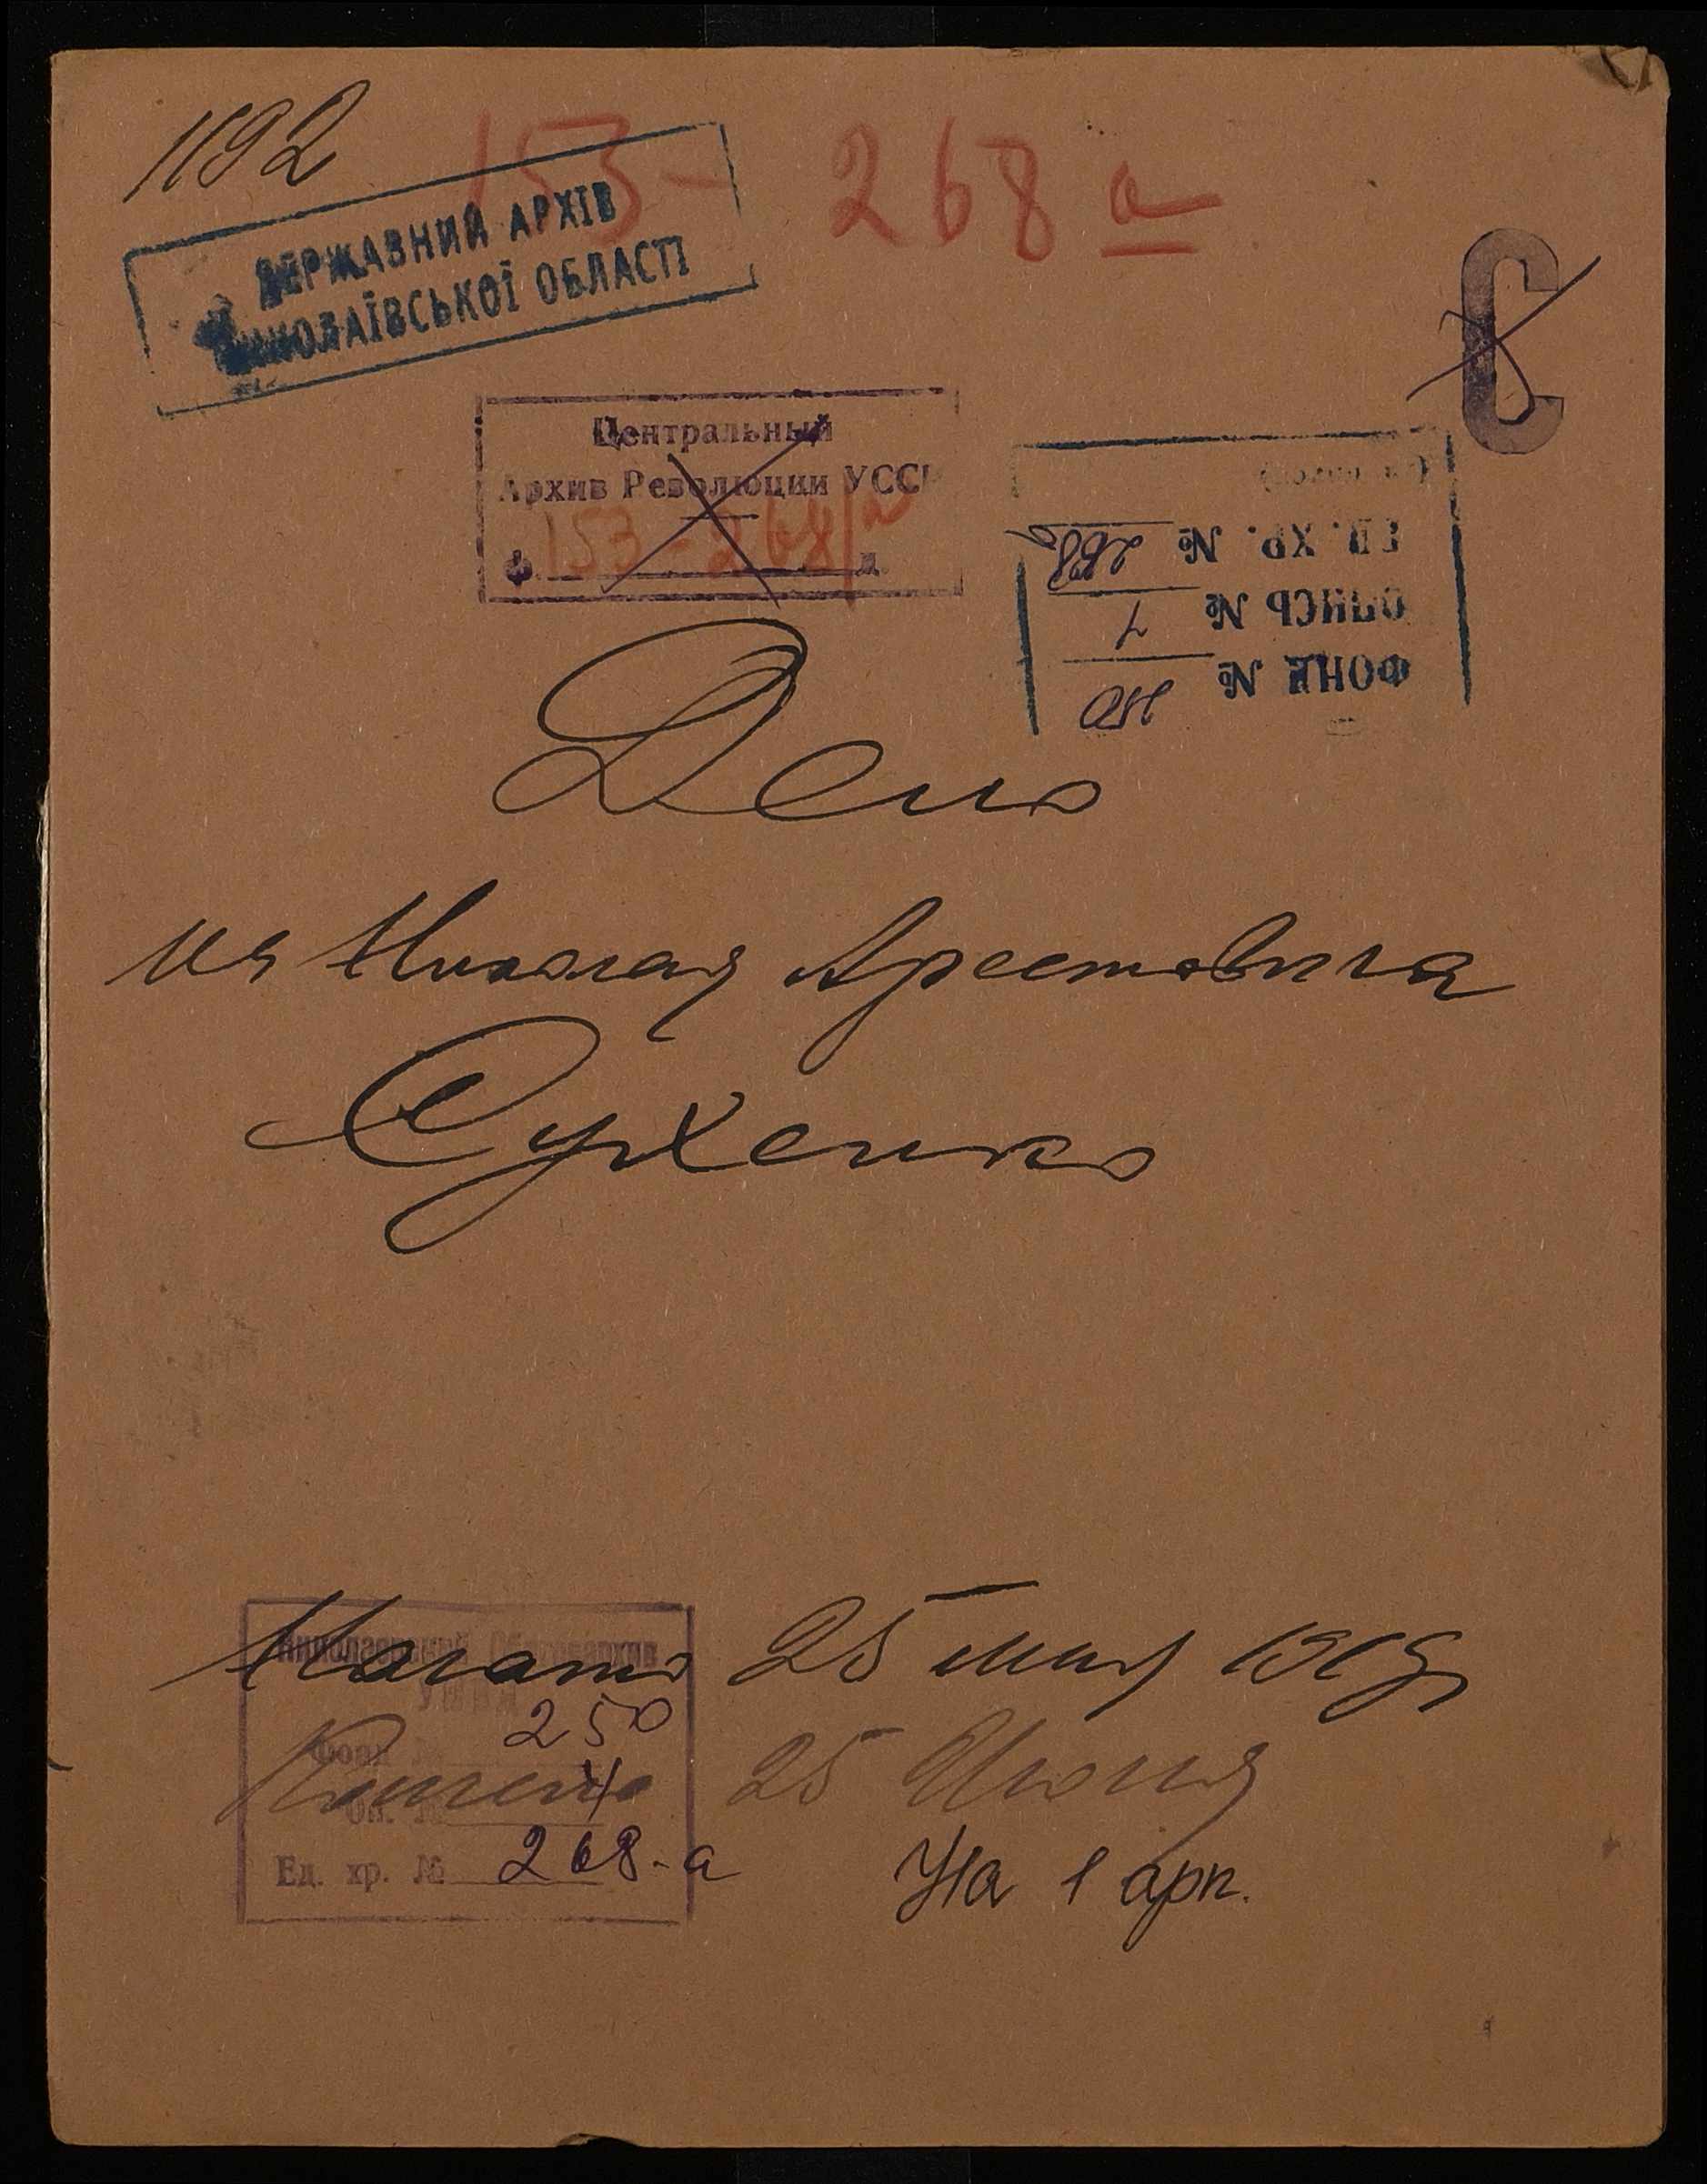 1192
153 - 268 а
ДЕРЖАВНИЙ АРХІВ
МИКОЛАЇВСЬКОЇ ОБЛАСТІ
С
Центральный
Архив Революции УССР
ф. 153 - 268/а д.
ФОНД № 250
ОПИСЬ № 1
ЕД. ХР. № 268а
Дело
Николая Арестовича
Сухенко
Николаевский Облгосархив
Начато 25 мая 1919 г.
УМВД
Фонд № 250
Кончено 25 Июня
Оп. №
Ед. хр. № 268-а
На 1 арк.